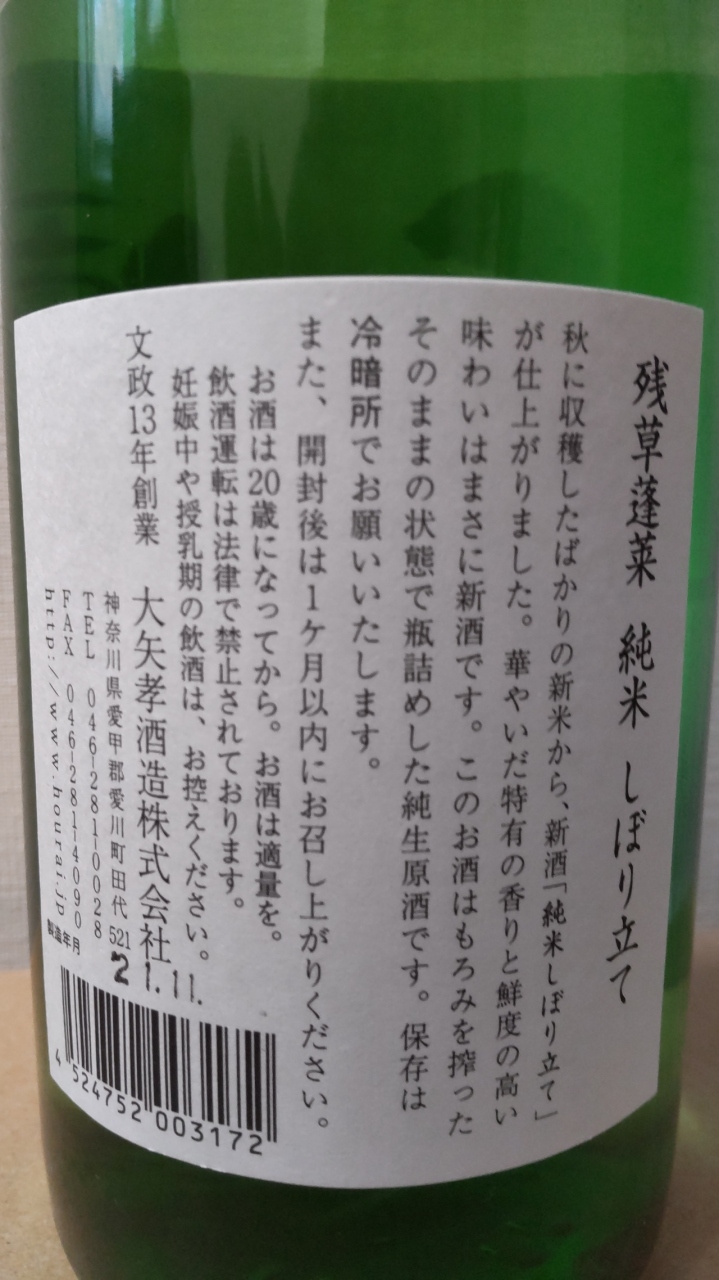 残草蓬莱 純米 しぼり立て
秋に収穫したばかりの新米から、新酒「純米しぼり立て」
が仕上がりました。華やいだ特有の香りと鮮度の高い
味わいはまさに新酒です。このお酒はもろみを搾った
そのままの状態で瓶詰めした純生原酒です。保存は
冷暗所でお願いいたします。
また、開封後は1ケ月以内にお召し上がりください。
お酒は20歳になってから。お酒は適量を。
飲酒運転は法律で禁止されております。
妊娠中や授乳期の飲酒は、お控えください。
文政13年創業 大矢孝酒造株式会社
神奈川県愛甲郡愛川町田代521
TEL 046-281-0028
FAX 046-281-4090
http://www.hourai.jp
製造年月
21.11.
4 524752 003172